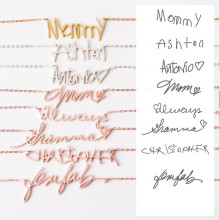 Mommy
Ashton
Antonio♡
Mom♡
always
Shamma♡
CHRISTOPHER
Mommy
Ashton
Antonio♡
Mom♡
always
Shamma♡
CHRISTOPHER